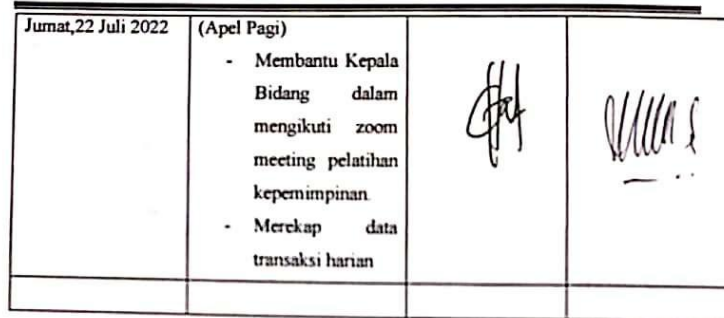 Jumat,22 Juli 2022
(Apel Pagi)
- Membantu Kepala
Bidang dalam
mengikuti zoom
meeting pelatihan
kepemimpinan.
- Merekap data
transaksi harian